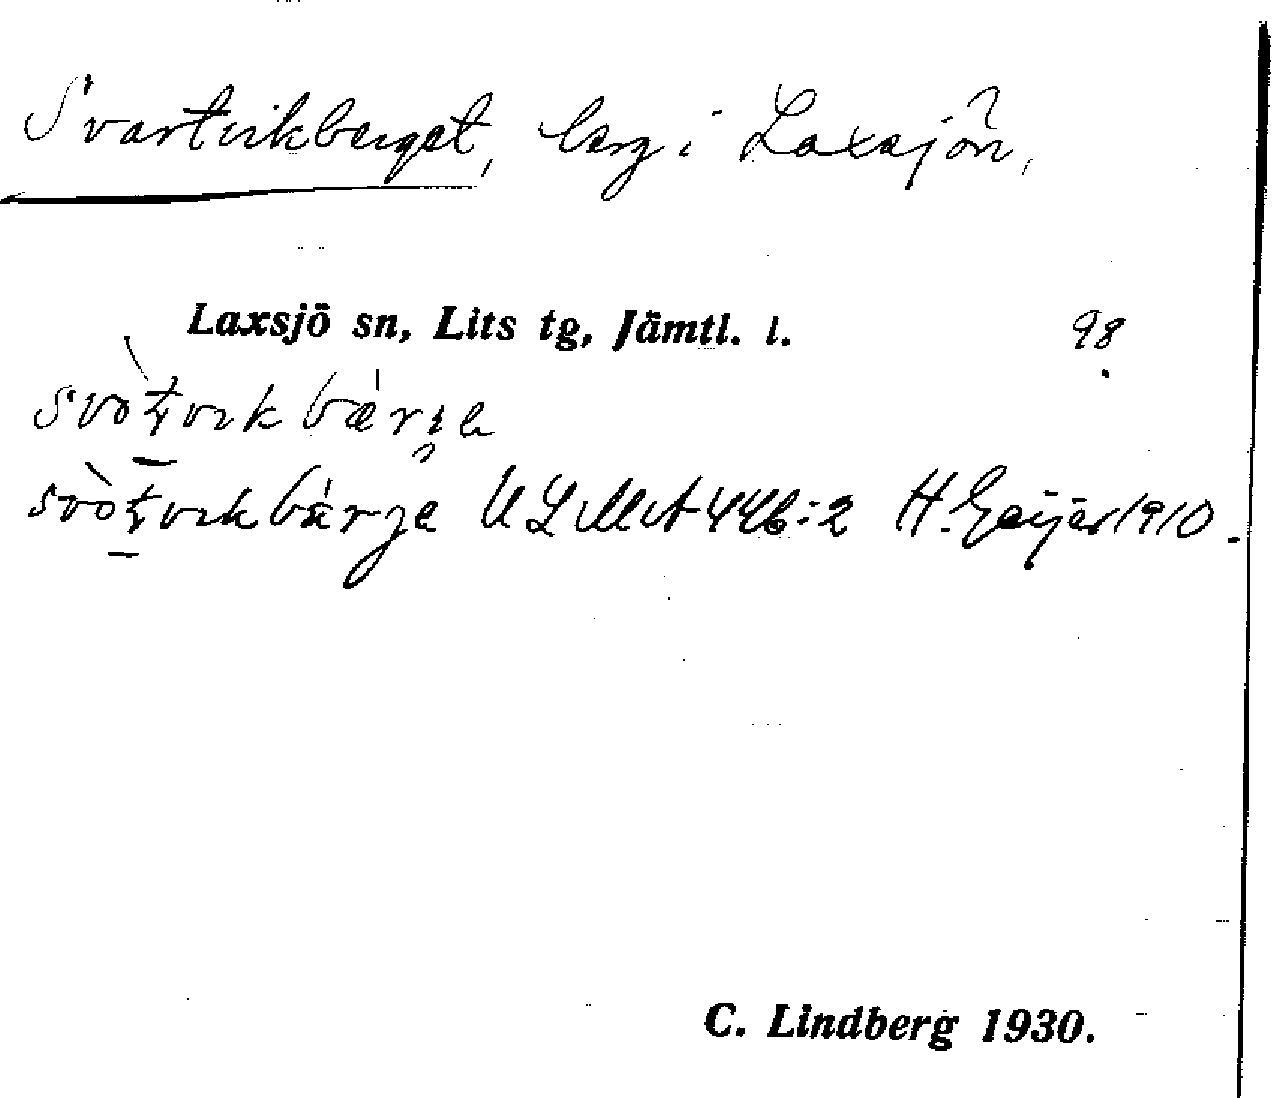 Svartvikberget, berg i Laxsjön.
Laxsjö sn, Lits tg, Jämtl. l. 98
svòtvık bær
svòtvıkbærje ULMA 446:2 H. Geijer 1910.
C. Lindberg 1930.